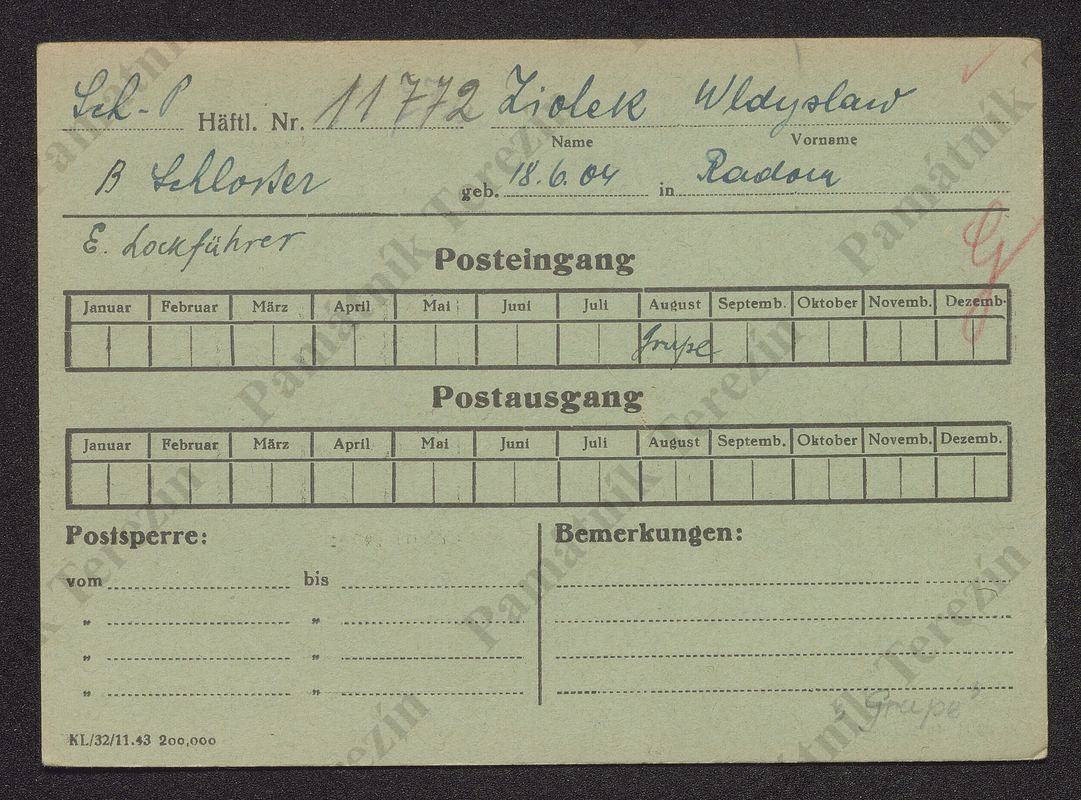 Sch-P Häftl. Nr. 11772 Ziolek Wldyslaw
Name Vorname
B Schlosser geb. 18.6.04 in Radom
E. Lockführer
Posteingang
Januar Februar März April Mai Juni Juli August Septemb. Oktober Novemb. Dezemb.
Grupe
Postausgang
Januar Februar März April Mai Juni Juli August Septemb. Oktober Novemb. Dezemb.
Postsperre: Bemerkungen:
vom bis
" "
" "
" "
"Grupe"
KL/32/11.43 200,000
Památník Terezín